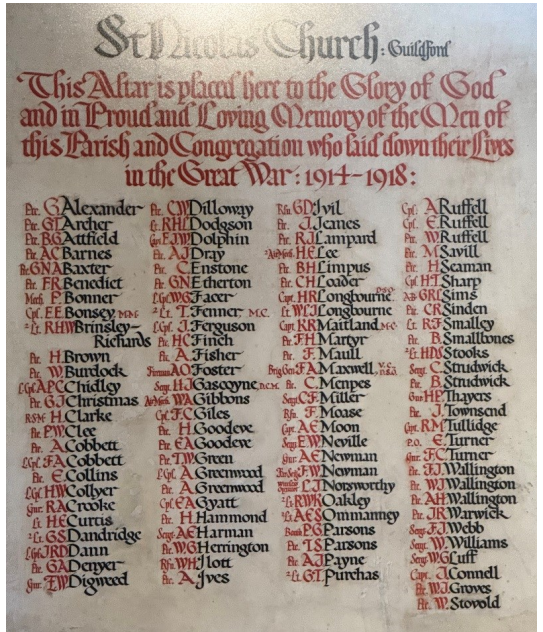 St Nicolas Church: Guildford
This Altar is placed here to the Glory of God
and in Proud and Loving Memory of the Men of
this Parish and Congregation who laid down their Lives
in the Great War: 1914-1918:
Pte. G Alexander
Pte. GT Archer
Pte. BG Attfield
Pte. AC Barnes
Pte. GNA Baxter
Pte. FR Benedict
Mech. P. Bonner
Cpl. EE Bonsey, M.M.
2/Lt. RHW Brinsley-
Richards
Pte. H. Brown
Pte. W. Burdock
L/Cpl. APC Chidley
Pte. GJ Christmas
R.S.M. H. Clarke
Pte. PW Clee
Pte. A Cobbett
L/Cpl. FA Cobbett
Pte. E. Collins
L/Cpl. HW Collyer
Gnr. RA Crooke
Lt. HE Curtis
2/Lt. GS Dandridge
L/Cpl. JRD Dann
Pte. GA Denyer
Gnr. EW Digweed
Pte. CW Dilloway
Lt. RHL Dodgson
EJW Dolphin
Pte. AJ Dray
Pte. C. Enstone
Pte. GN Etherton
L/Cpl. WG Facer
2/Lt. T. Fenner, M.C.
L/Cpl. J. Ferguson
Pte. HC Finch
Pte. A. Fisher
AO Foster
Sergt. HJ Gascoyne, D.C.M.
WA Gibbons
Cpl. FC Giles
Pte. H. Goodeve
Pte. EA Goodeve
Pte. TW. Green
L/Cpl. A Greenwood
Pte. A Greenwood
Cpl. EA Gyatt
Pte. H Hammond
Sergt. AE Harman
Pte. WG Herrington
Rfn. WH Ilott
Pte. A. Ives
Rfn. GD. Ivil
Pte. J. Jeanes
Pte. RJ Lampard
HE Lee
Pte. BH Limpus
Pte. CH Loader
Capt. HR Longbourne, D.S.O.
Lt. WLJ Longbourne
Capt. KR Maitland, M.C.
Pte. FH Martyr
Pte. F. Maull
Brig Gen FA Maxwell, V.C.
Pte. C. Menpes
Sergt. CF. Miller
Rfn. F. Moase
Capt. AE Moon
Sergt. EW Neville
Gnr. AE Newman
FW. Newman
LJ Norsworthy
2/Lt. RWK Oakley
2/Lt. AES Ommanney
Bomb. PG Parsons
Pte. TS Parsons
Pte. AJ Payne
2/Lt. GT Purchas
Cpl. A Ruffell
Cpl. E. Ruffell
Pte. W. Ruffell
Pte. M. Savill
Pte. H Seaman
Cpl. HT Sharp
A.B. GRL Sims
Pte. CR Sinden
Lt. RF Smalley
Pte. B. Smallbones
2/Lt. HDS Stooks
Sergt. C. Strudwick
Pte. B. Strudwick
Gnr. HF Thayers
Pte. J. Townsend
Capt. RM Tullidge
P.O. E. Turner
Gnr. FC Turner
Pte. FJ. Wallington
Pte. WJ Wallington
Pte. AH Wallington
Pte. JR Warwick
Sergt. FJ Webb
Sergt. W. Williams
Sergt. WG Luff
Capt. J Connell
Pte. WJ. Groves
Pte. W. Stovold